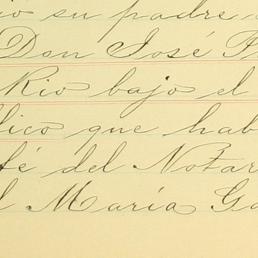 io su padre
Don José
Rio bajo el
lico que hab
fé del Notar
l María Ga